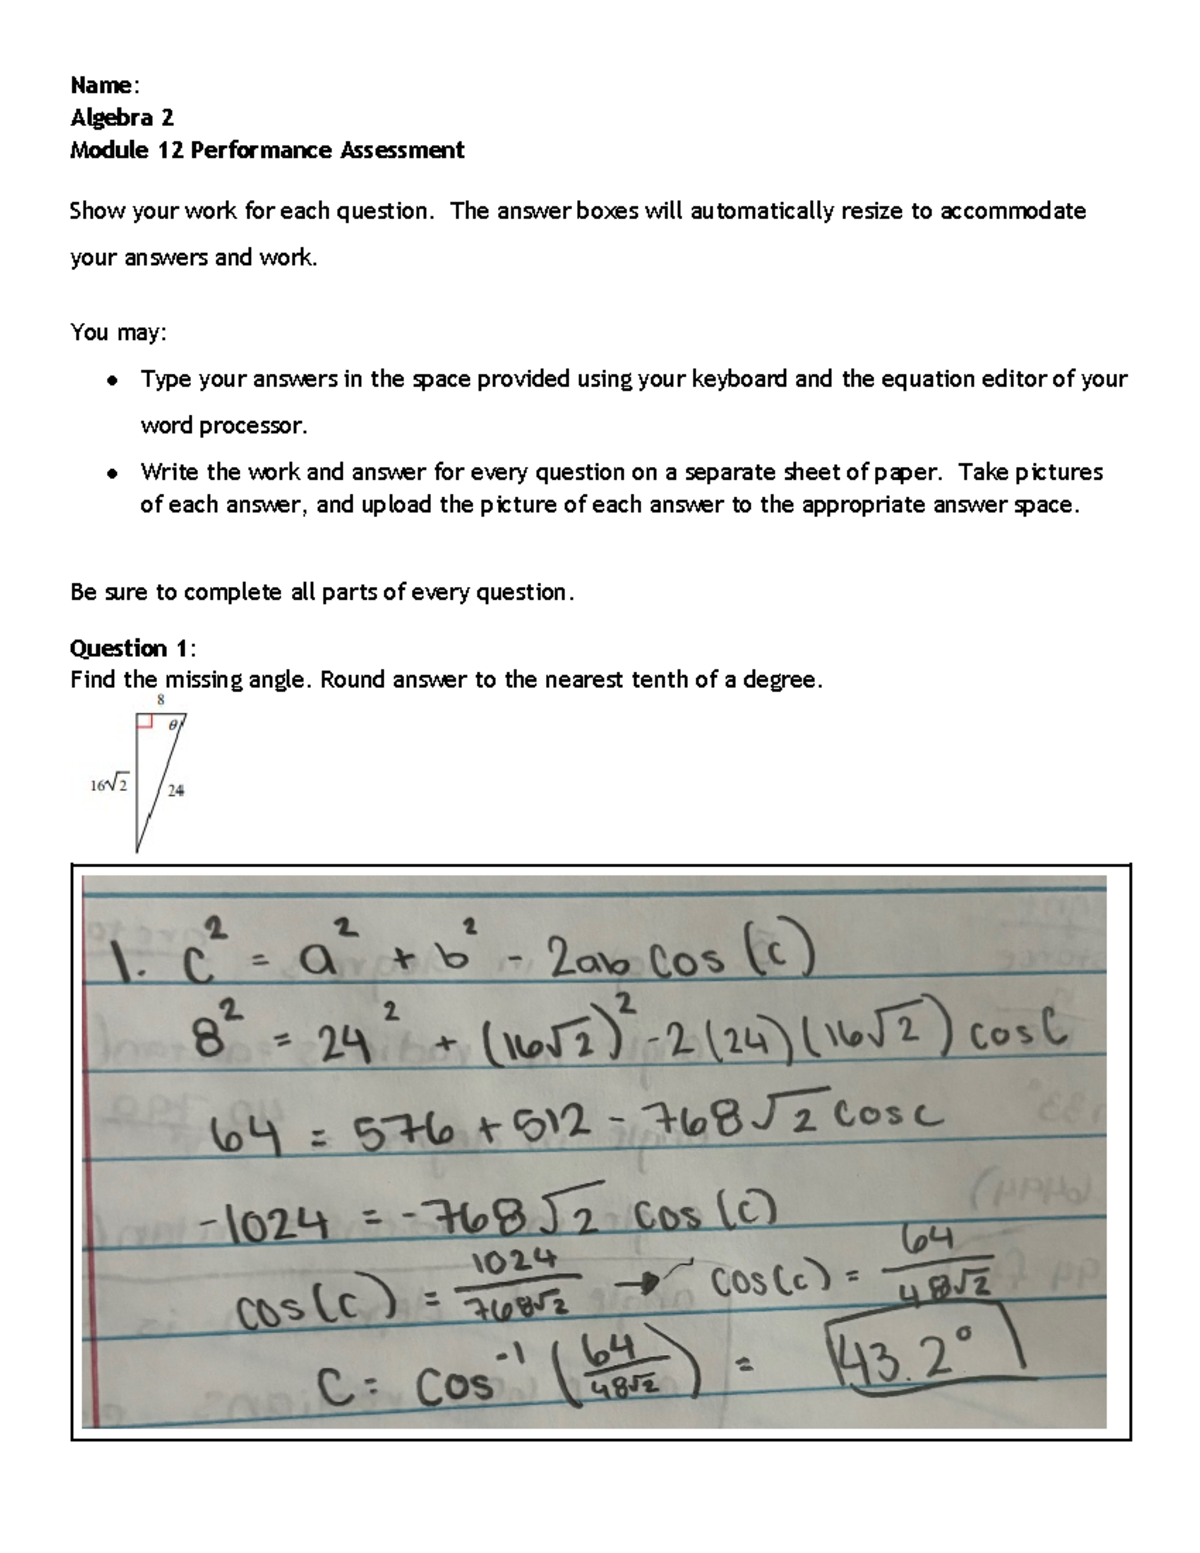 Name:
Algebra 2
Module 12 Performance Assessment
Show your work for each question. The answer boxes will automatically resize to accommodate
your answers and work.
You may:
• Type your answers in the space provided using your keyboard and the equation editor of your
word processor.
• Write the work and answer for every question on a separate sheet of paper. Take pictures
of each answer, and upload the picture of each answer to the appropriate answer space.
Be sure to complete all parts of every question.
Question 1:
Find the missing angle. Round answer to the nearest tenth of a degree.
8
θ
16√2
24
1. c² = a² + b² - 2ab cos(c)
8² = 24² + (16√2)² - 2(24)(16√2) cos C
64 = 576 + 512 - 768√2 cos c
-1024 = -768√2 cos(c)
cos(c) = 1024/768√2 → cos(c) = 64/48√2
C = cos⁻¹(64/48√2) = 43.2°